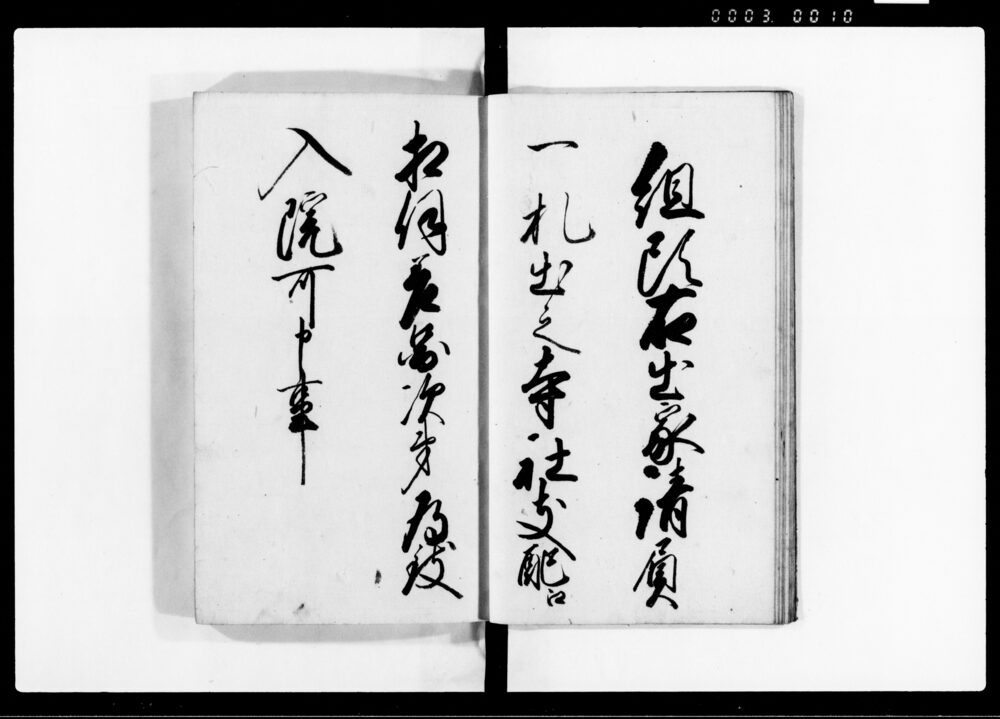 0003. 0010
組頭右出家請負
一札出之寺社支配江
相伺差図次第為致
入院可申事